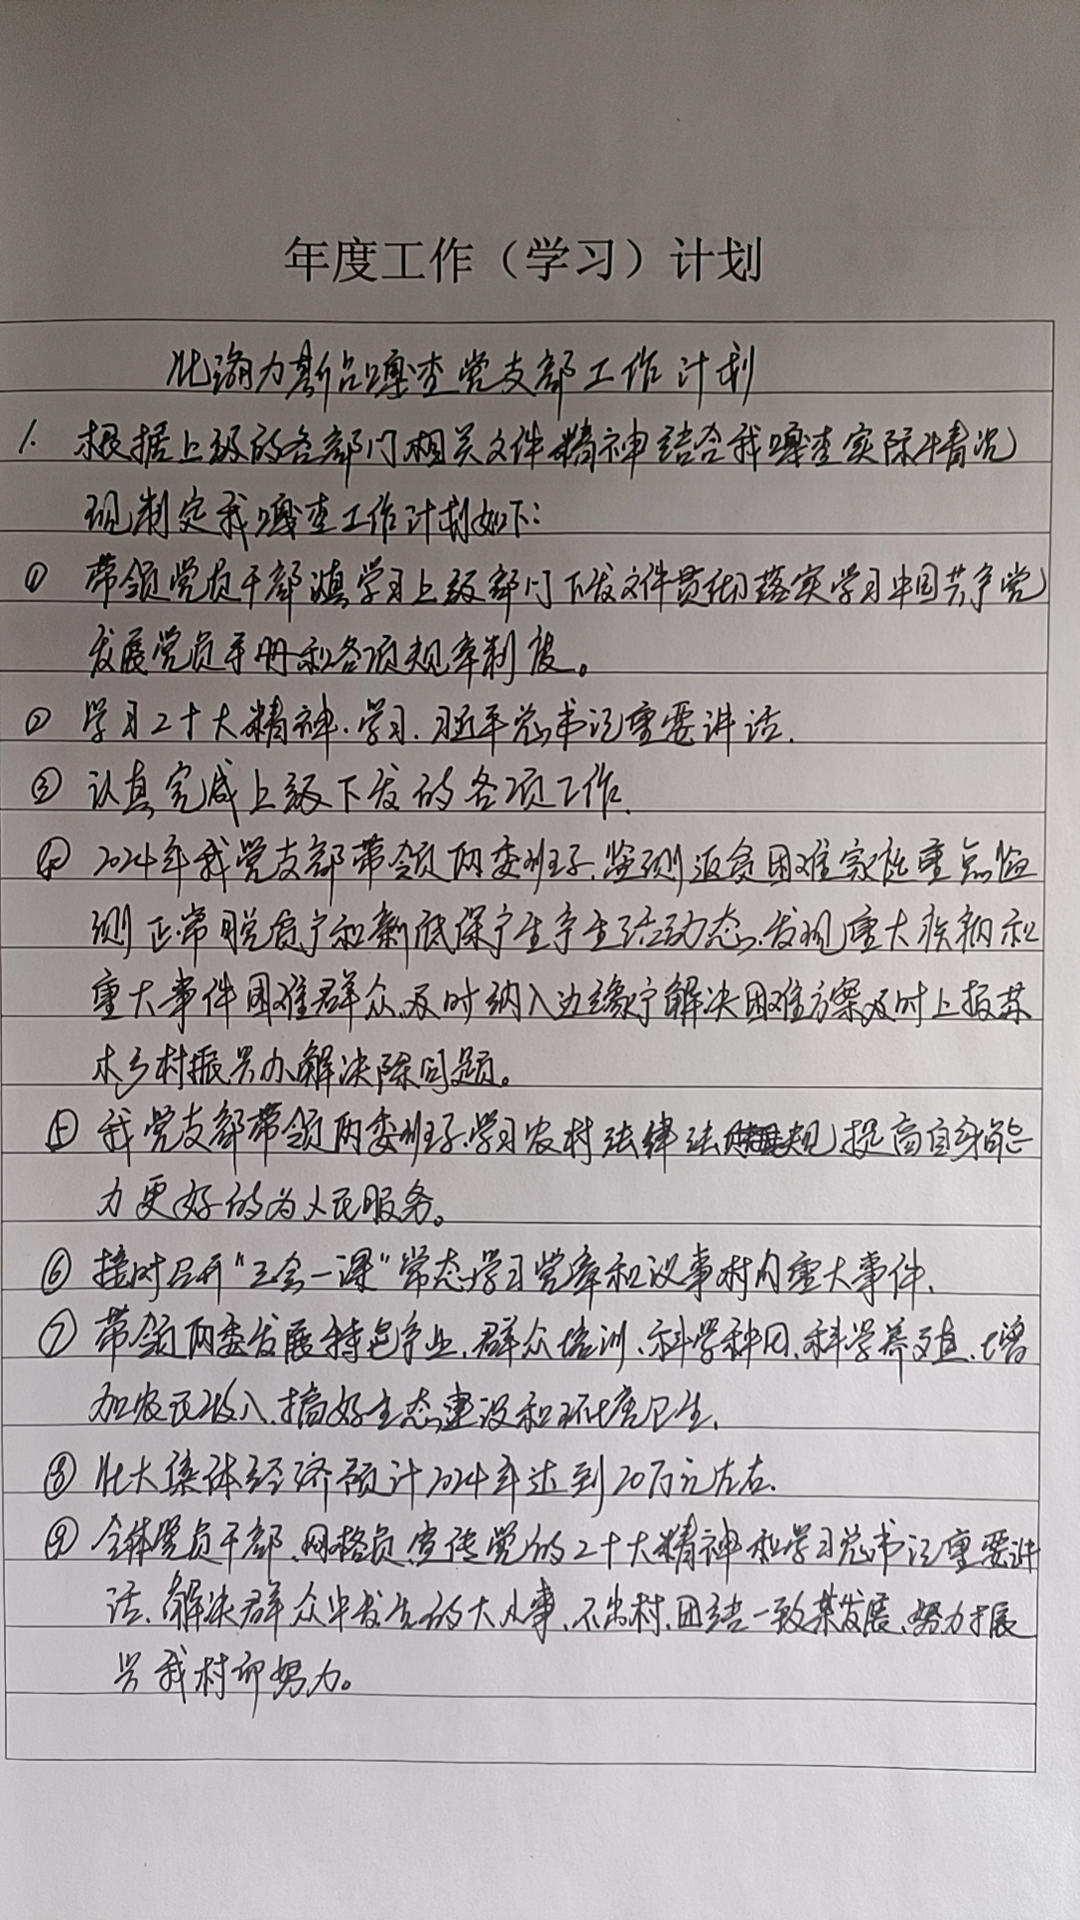 年度工作（学习）计划
力斯台嘎查党支部工作计划
1. 根据上级的各部门相关文件精神结合我嘎查实际情况
现制定我嘎查工作计划如下：
① 带领党员干部慎学习上级部门下发文件贯彻落实学习中国共产党
发展党员手册和各项规章制度。
② 学习二十大精神.学习.习近平总书记重要讲话.
③ 认真完成上级下发的各项工作.
④ 2024年我党支部带领两委班子.监测返贫困难家庭重点监
测正常脱贫户和新低保户生产生活动态.发现重大疾病和
重大事件困难群众.及时纳入边缘户解决困难方案及时上报苏
木乡村振兴办解决除问题。
⑤ 我党支部带领两委班子.学习农村法律法规提高自身能
力更好的为人民服务。
⑥ 按时召开“三会一课”常态学习党章和议事村内重大事件.
⑦ 带领两委发展特色产业.群众培训.科学种田.科学养殖.增
加农民收入.搞好生态建设和环境卫生.
⑧ 壮大集体经济预计2024年达到20万元左右.
⑨ 全体党员干部.网格员.宣传党的二十大精神和学习总书记重要讲
话.解决群众中发生的大小事.不出村.团结一致某发展.努力振
兴我村而努力。